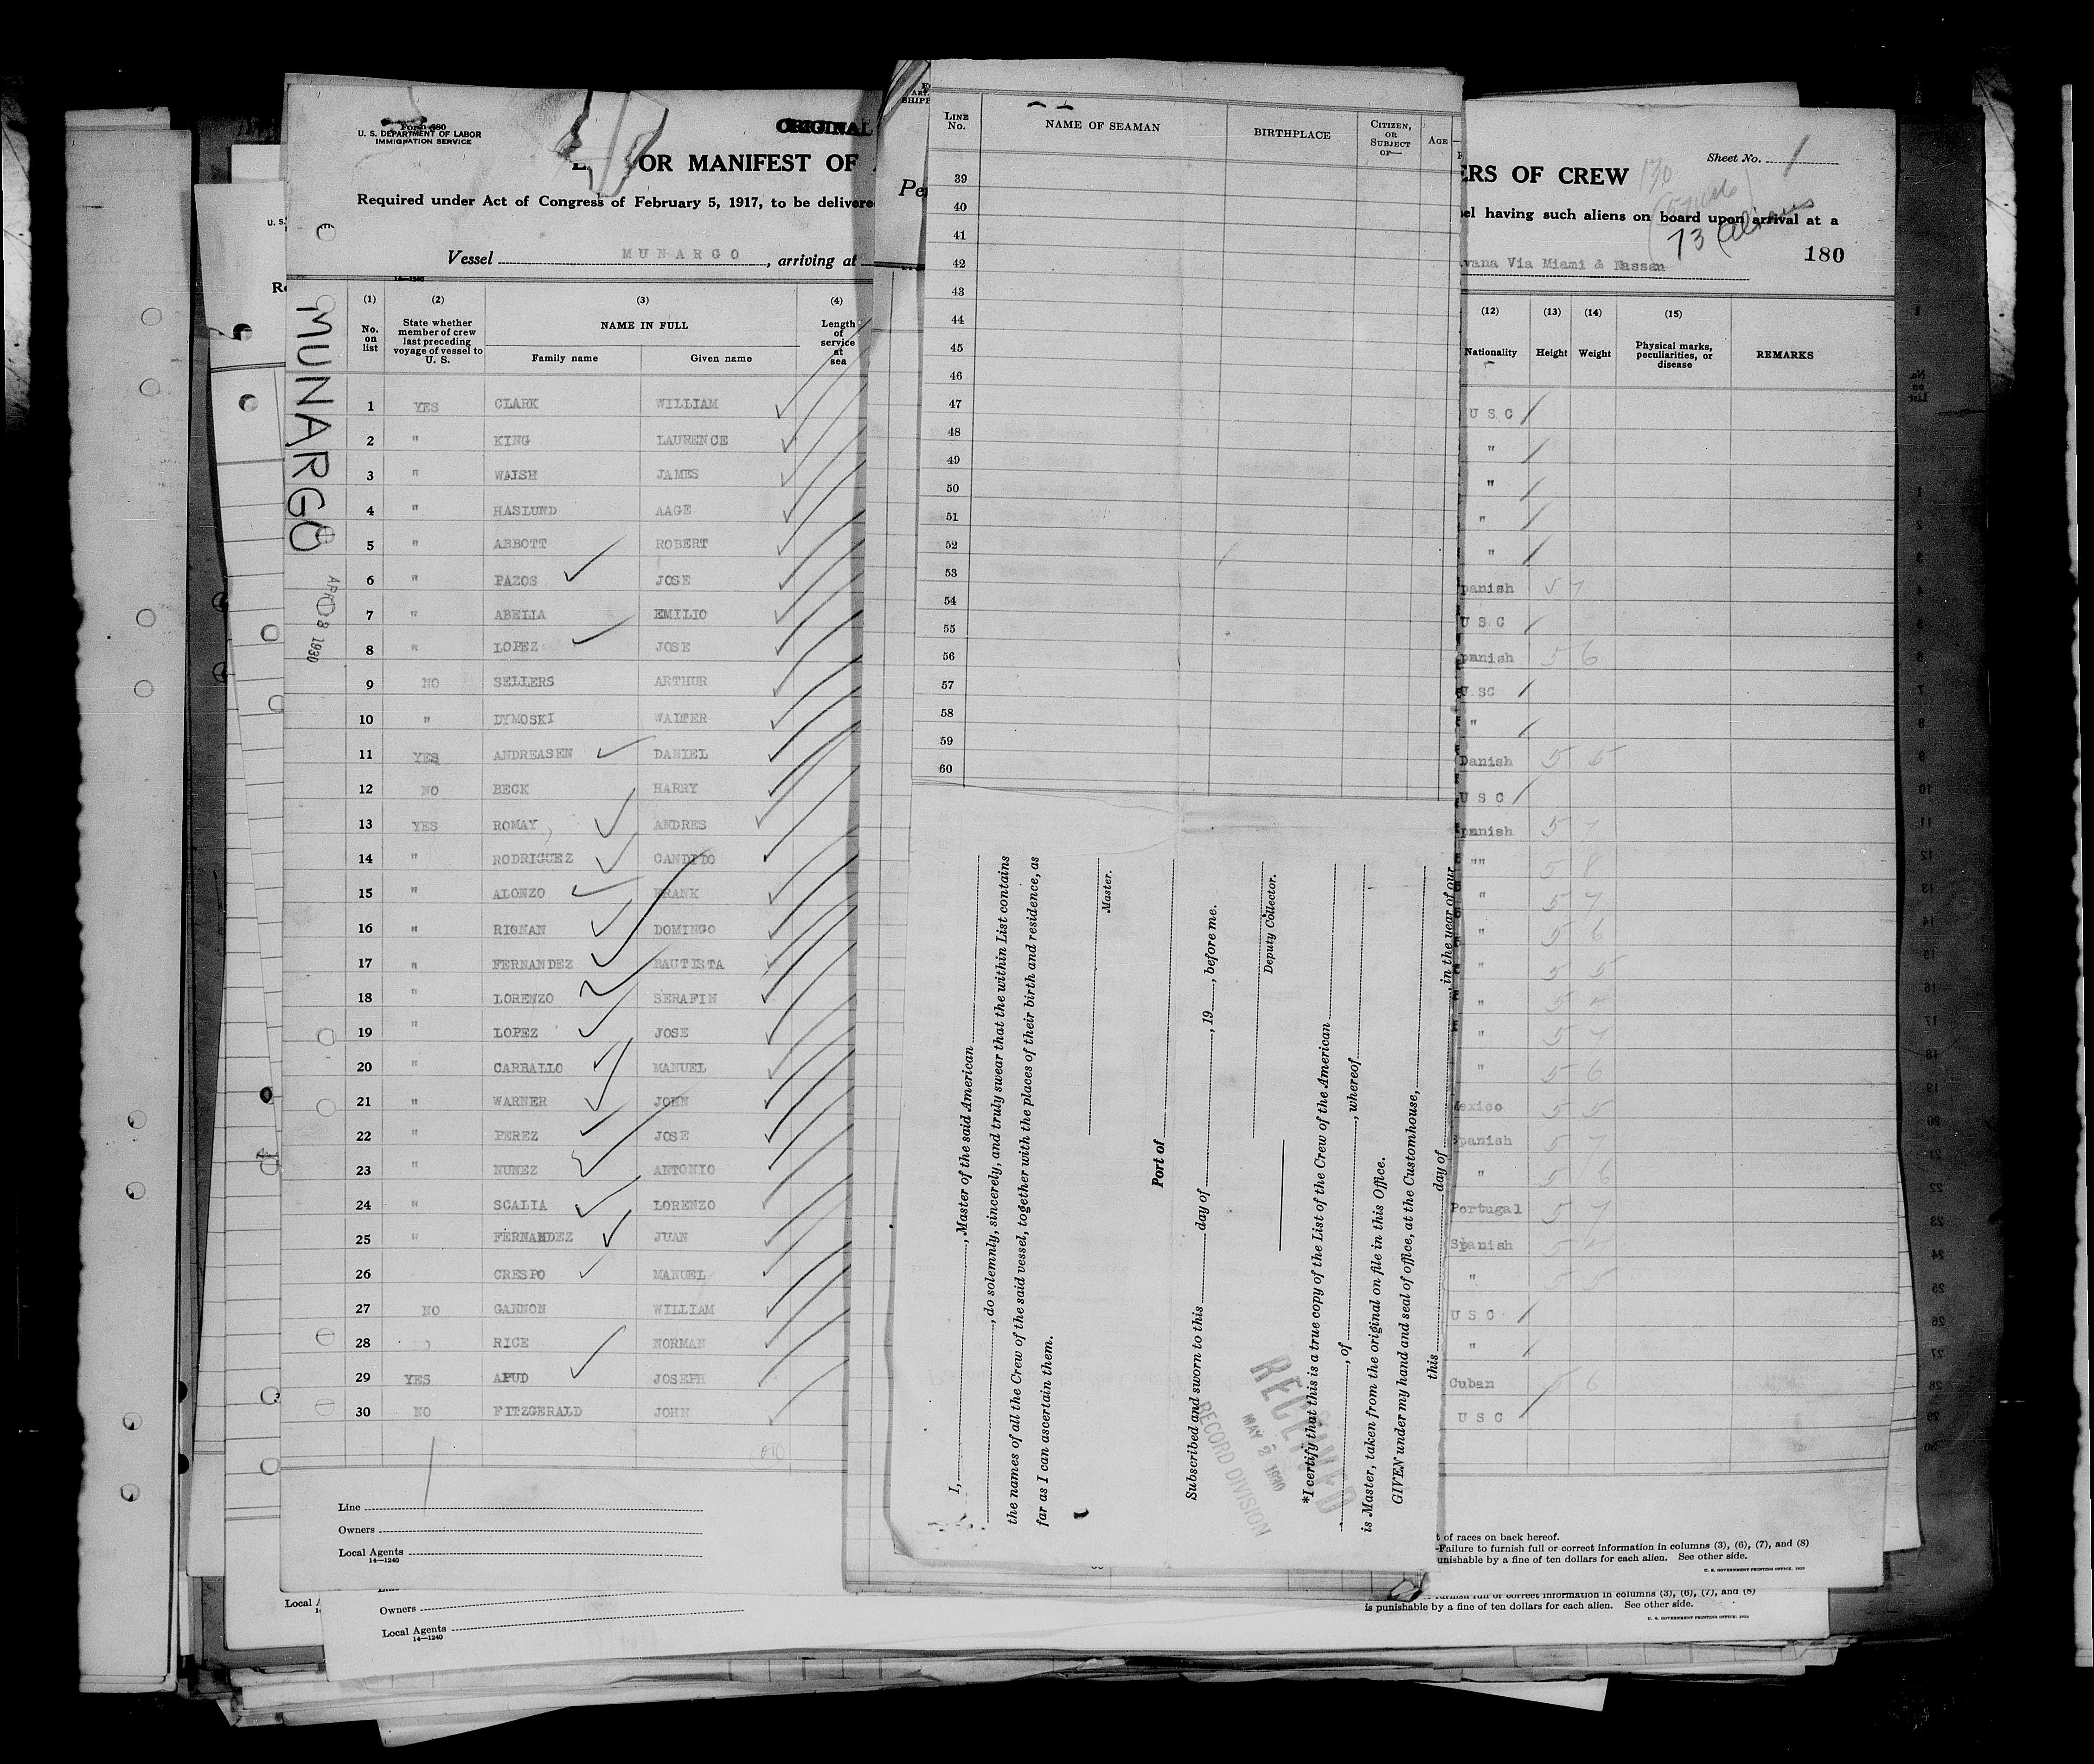 Form 680
U. S. DEPARTMENT OF LABOR
IMMIGRATION SERVICE
ORIGINAL
OR MANIFEST OF
Required under Act of Congress of February 5, 1917, to be delivered
Vessel MUNARGO, arriving at
14—1240
MUNARGO
APR 8 1930
(1) (2) (3) (4)
No. on list
State whether member of crew last preceding voyage of vessel to U. S.
NAME IN FULL
Family name Given name
Length of service at sea
1 YES CLARK WILLIAM
2 " KING LAURENCE
3 " WALSH JAMES
4 " HASLUND AAGE
5 " ABBOTT ROBERT
6 " PAZOS JOSE
7 " ABELLA EMILIO
8 " LOPEZ JOSE
9 NO SELLERS ARTHUR
10 " DYMOSKI WALTER
11 YES ANDREASEN DANIEL
12 NO BECK HARRY
13 YES ROMAY ANDRES
14 " RODRIGUEZ CANDIDO
15 " ALONZO FRANK
16 " RIONAN DOMINGO
17 " FERNANDEZ BAUTISTA
18 " LORENZO SERAFIN
19 " LOPEZ JOSE
20 " CARBALLO MANUEL
21 " WARNER JOHN
22 " PEREZ JOSE
23 " NUNEZ ANTONIO
24 " SCALIA LORENZO
25 " FERNANDEZ JUAN
26 CRESPO MANUEL
27 NO GANNON WILLIAM
28 RICE NORMAN
29 YES APUD JOSEPH
30 NO FITZGERALD JOHN
Line
Owners
Local Agents
14—1240
Owners
Local Agents
14—1240
LINE No. NAME OF SEAMAN BIRTHPLACE CITIZEN, OR SUBJECT OF— AGE
39
40
41
42
43
44
45
46
47
48
49
50
51
52
53
54
55
56
57
58
59
60
I, , Master of the said American
, do solemnly, sincerely, and truly swear that the within List contains
the names of all the Crew of the said vessel, together with the places of their birth and residence, as
far as I can ascertain them.
Master.
Port of
Subscribed and sworn to this day of , 19 , before me.
Deputy Collector.
*I certify that this is a true copy of the List of the Crew of the American
, of , whereof
is Master, taken from the original on file in this Office.
GIVEN under my hand and seal of office, at the Customhouse,
this day of , in the year of our
RECEIVED
MAY 2 1930
RECORD DIVISION
ERS OF CREW
Sheet No. 1
sel having such aliens on board upon arrival at a
73 Aliens
180
vana Via Miami & Nassau
(12) (13) (14) (15)
Nationality Height Weight Physical marks, peculiarities, or disease REMARKS
U S C
"
"
"
"
panish 5 7
U S C
panish 5 6
U SC
"
Danish 5 5
U S C
panish 5 7
"" 5 8
" 5 7
" 5 6
" 5 5
" 5
" 5 7
" 5 6
Mexico 5 5
Spanish 5 7
" 5 6
Portugal 5 7
Spanish 5 4
" 5 5
U S C
"
Cuban 5 6
U S C
t of races on back hereof.
-Failure to furnish full or correct information in columns (3), (6), (7), and (8)
unishable by a fine of ten dollars for each alien. See other side.
U. S. GOVERNMENT PRINTING OFFICE: 1929
furnish full or correct information in columns (3), (6), (7), and (8)
is punishable by a fine of ten dollars for each alien. See other side.